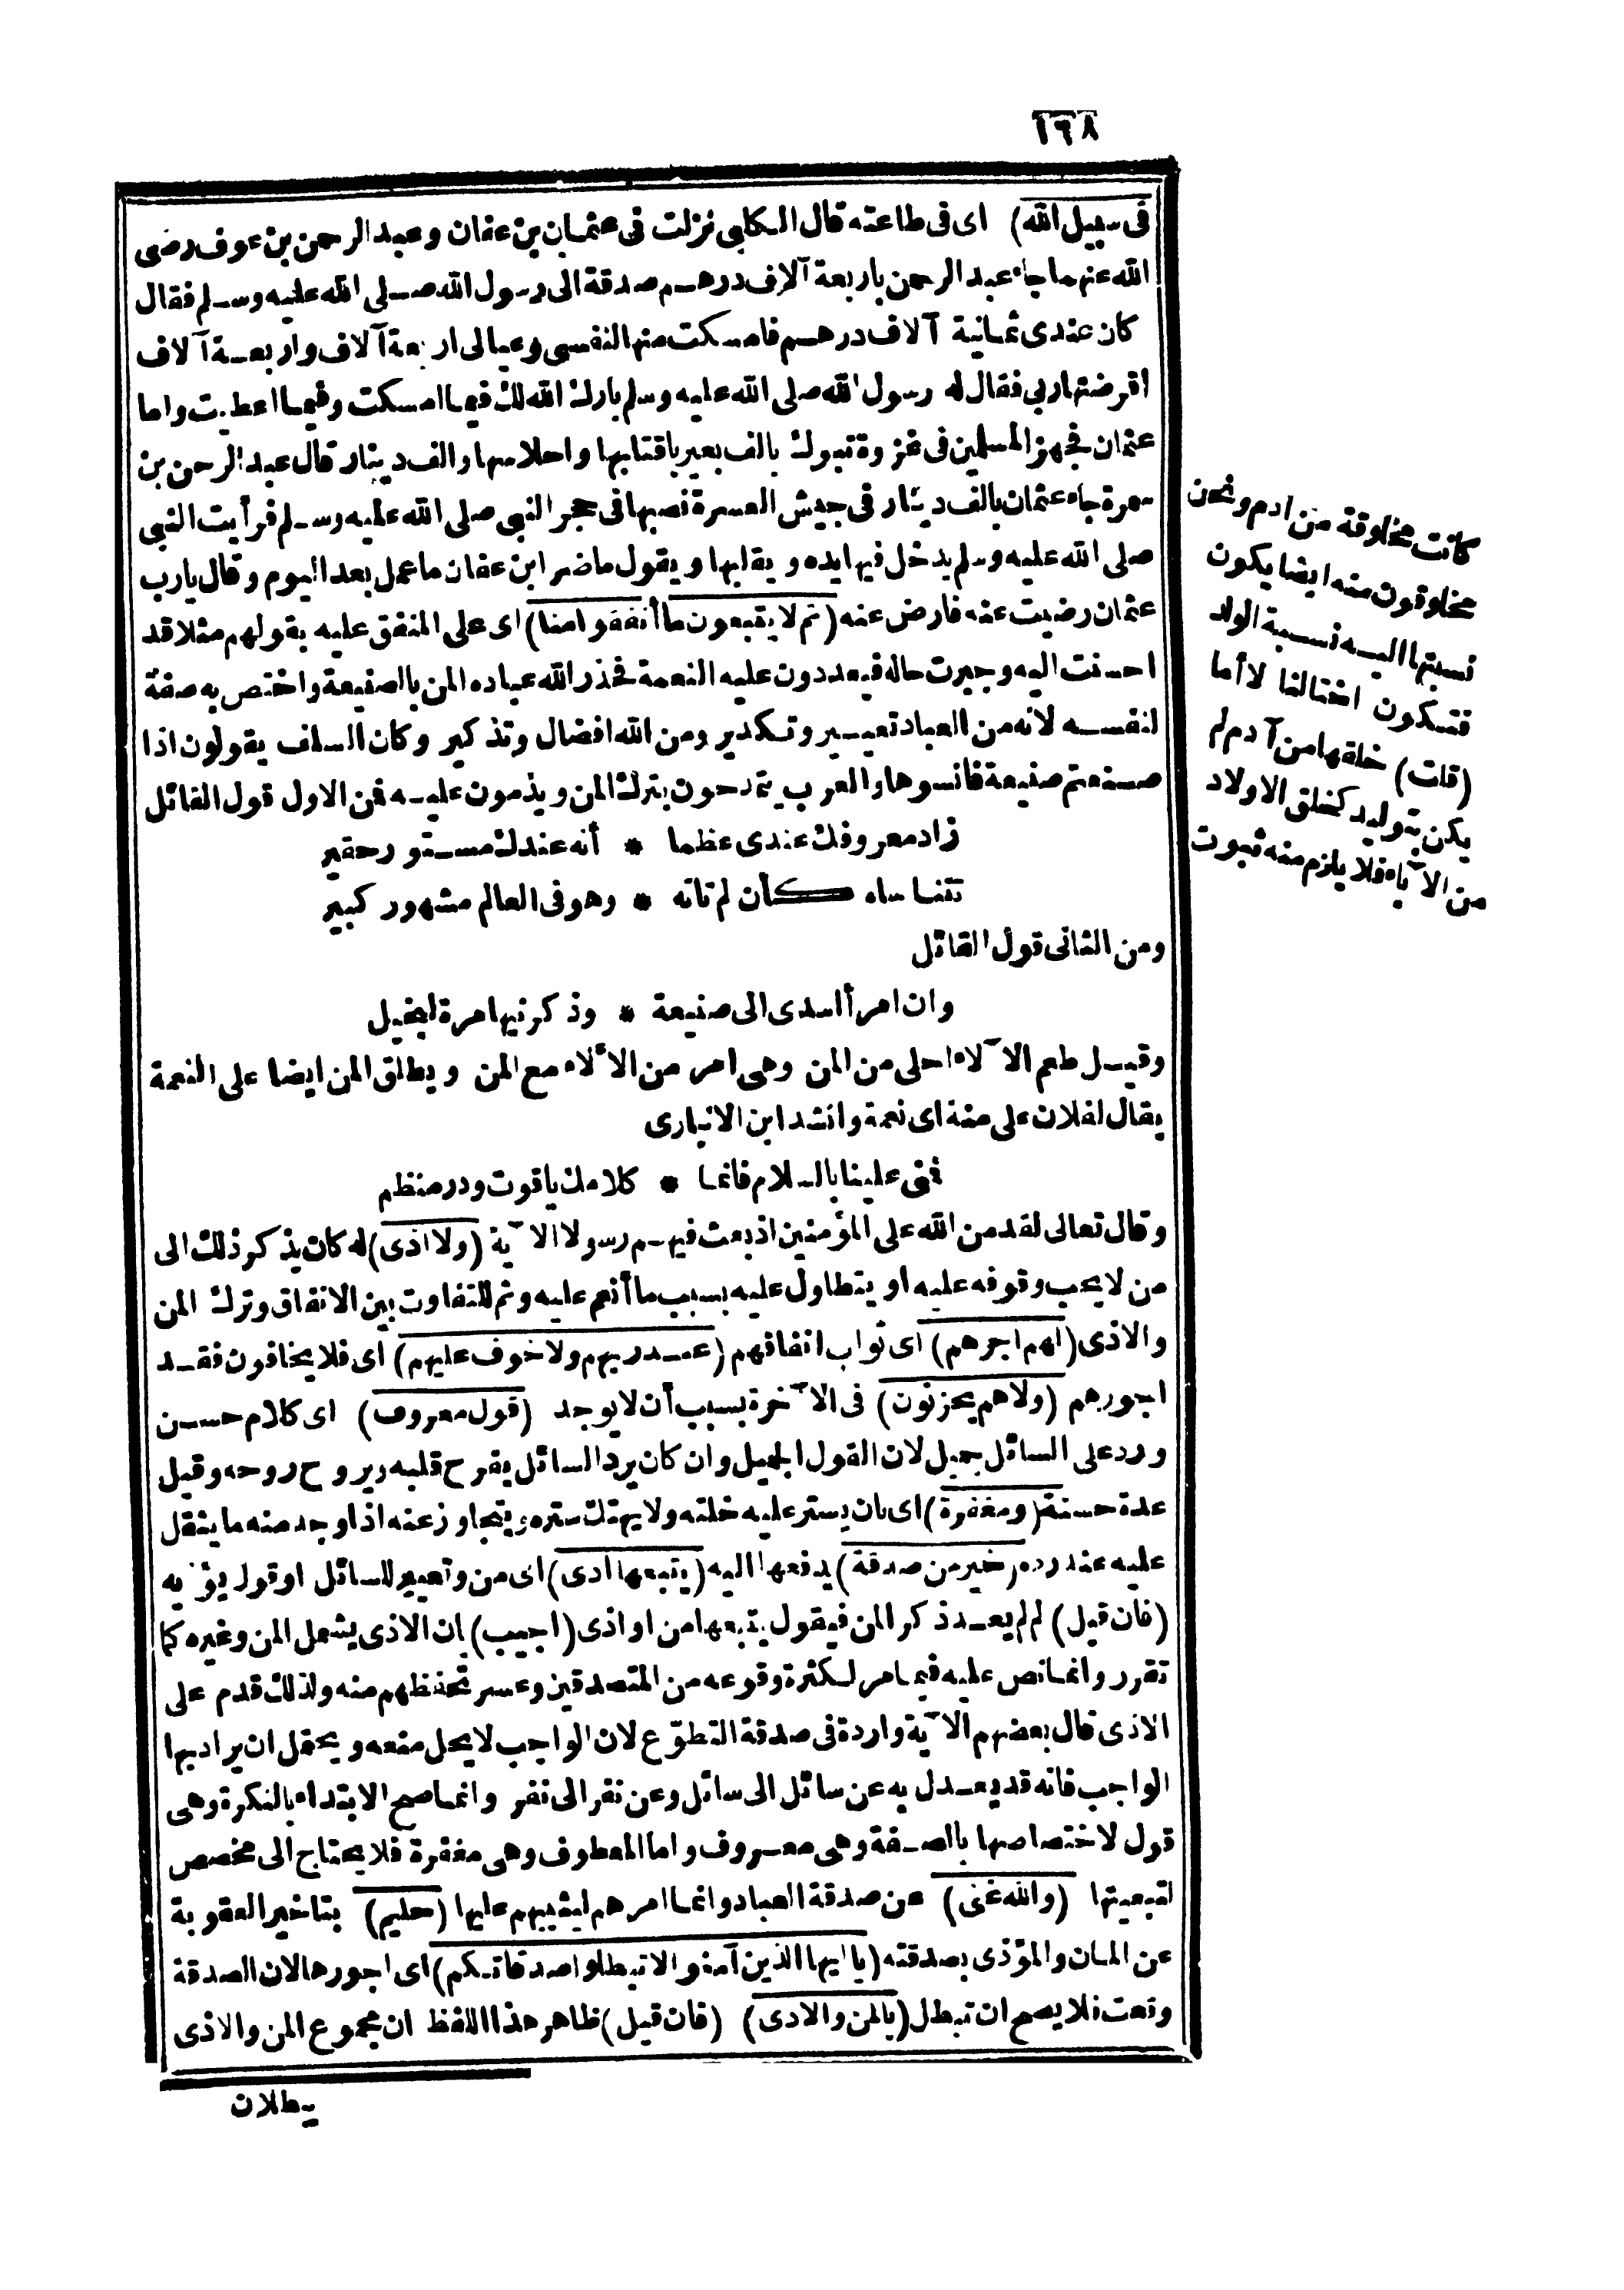 ١٦٨
فى سبيل الله) اى فى طاعته قال الكلبى نزلت فى عثمان بن عفان وعبد الرحمن بن عوف رضى
الله عنهما جاء عبد الرحمن باربعة آلاف درهم صدقة الى رسول الله صلى الله عليه وسلم فقال
كان عندى ثمانية آلاف درهم فامسكت منها لنفسى وعيالى اربعة آلاف واربعة آلاف
اقرضتها ربى فقال له رسول الله صلى الله عليه وسلم بارك الله لك فيما امسكت وفيما اعطيت واما
عثمان فجهز المسلمين فى غزوة تبوك بالف بعير باقتابها واحلاسها والف دينار قال عبد الرحمن بن
سمرة جاء عثمان بالف دينار فى جيش العسرة فصبها فى حجر النبى صلى الله عليه وسلم فرأيت النبى
صلى الله عليه وسلم يدخل فيها يده ويقلبها ويقول ماضر ابن عفان ما عمل بعد اليوم وقال يارب
عثمان رضيت عنه فارض عنه (ثم لا يتبعون ما أنفقوا منا) اى على المنفق عليه بقولهم مثلا قد
احسنت اليه وجبرت حاله فيعددون عليه النعمة فحذر الله عباده المن بالصنيعة واختص به صفة
لنفسه لانه من العباد تعيير وتكدير ومن الله افضال وتذكير وكان السلف يقولون اذا
صنعتم صنيعة فانسوها والعرب يتمدحون بترك المن ويذمون عليه فمن الاول قول القائل
زاد معروفك عندى عظما * أنه عندك مستور حقير
تتناساه كأن لم تاته * وهو فى العالم مشهور كبير
ومن الثانى قول القائل
وان امرأ اسدى الى صنيعة * وذكرنيها مرة لبخيل
وقيل طعم الآلاء احلى من المن وهى امر من الألاء مع المن ويطلق المن ايضا على النعمة
يقال لفلان على منة اى نعمة وانشد ابن الانبارى
فمنى علينا بالسلام فانما * كلامك ياقوت ودر منظم
وقال تعالى لقد من الله على المؤمنين اذ بعث فيهم رسولا الآية (ولا اذى) له كان يذكر ذلك الى
من لا يحب وقوفه عليه او يتطاول عليه بسبب ما أنعم عليه وثم للتفاوت بين الانفاق وترك المن
والاذى (لهم اجرهم) اى ثواب انفاقهم (عند ربهم ولا خوف عليهم) اى فلا يخافون فقد
اجورهم (ولا هم يحزنون) فى الآخرة بسبب أن لا يوجد (قول معروف) اى كلام حسن
ورد على السائل جميل لان القول الجميل وان كان يرد السائل يفرح قلبه ويروح روحه وقيل
عدة حسنة (ومغفرة) اى بان يستر عليه خلته ولا يهتك ستره ويتجاوز عنه اذا وجد منه ما يثقل
عليه عند رده (خير من صدقة) يدفعها اليه (يتبعها اذى) اى من وتعيير للسائل او قول يؤذيه
(فان قيل) لم لم يعد ذكر المن فيقول يتبعها من او اذى (اجيب) بان الاذى يشمل المن وغيره كما
تقرر وانما نص عليه فيما مر لكثرة وقوعه من المتصدقين وعسر تحفظهم منه ولذلك قدم على
الاذى قال بعضهم الآية واردة فى صدقة التطوّع لان الواجب لا يحل منعه ويحتمل ان يراد بها
الواجب فانه قد يعدل به عن سائل الى سائل وعن نفر الى نفر وانما صح الابتداء بالنكرة وهى
قول لاختصاصها بالصفة وهى معروف واما المعطوف وهى مغفرة فلا يحتاج الى مخصص
لتبعيتها (والله غنى) عن صدقة العباد وانما امرهم ليثيبهم عليها (حليم) بتاخير العقوبة
عن المان والمؤذى بصدقته (يا ايها الذين آمنوا لا تبطلوا صدقاتكم) اى اجورها لان الصدقة
وقعت فلا يصح ان تبطل (بالمن والاذى) (فان قيل) ظاهر هذا اللفظ ان مجموع المن والاذى
يبطلان
كانت مخلوقة من ادم ونحن
مخلوقون منه ايضا يكون
نسبتها اليه نسبة الولد
فتكون اختا لنا لا أما
(قلت) خلقها من آدم لم
يكن بتوليد كخلق الاولاد
من الآباء فلا يلزم منه ثبوت